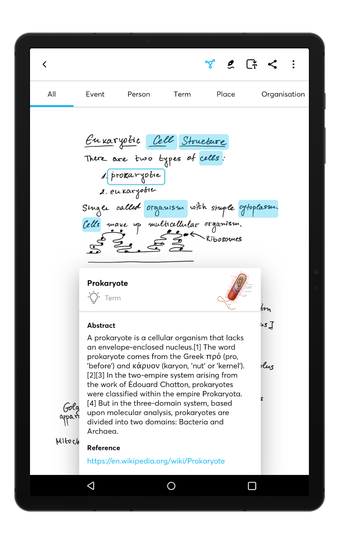 All Event Person Term Place Organisation
Eukaryotic Cell Structure
There are two types of cells:
1. prokaryotic
2. eukaryotic
Single called organism with simple cytoplasm.
Cells make up multicellular organism.
Ribosomes
Prokaryote
Term
Abstract
A prokaryote is a cellular organism that lacks
an envelope-enclosed nucleus.[1] The word
prokaryote comes from the Greek πρό (pro,
'before') and κάρυον (karyon, 'nut' or 'kernel').
[2][3] In the two-empire system arising from
the work of Édouard Chatton, prokaryotes
were classified within the empire Prokaryota.
[4] But in the three-domain system, based
upon molecular analysis, prokaryotes are
divided into two domains: Bacteria and
Archaea.
Reference
https://en.wikipedia.org/wiki/Prokaryote